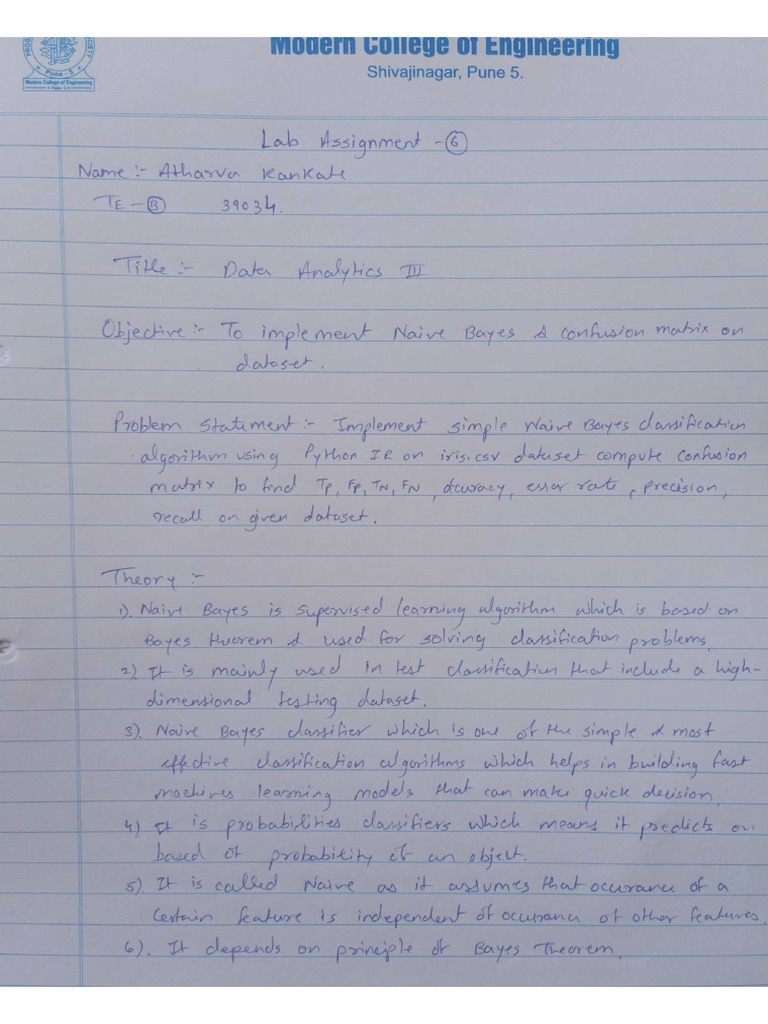 Modern College of Engineering
Shivajinagar, Pune 5.
Pune - 5
Modern College of Engineering
Pune - 5.
Lab Assignment - 6
Name :- Atharva Kankate
TE - B 39034.
Title :- Data Analytics III
Objective :- To implement Naive Bayes & confusion matrix on
dataset.
Problem Statement :- Implement simple Naive Bayes classification
algorithm using Python IR on iris.csv dataset compute confusion
matrix to find TP, FP, TN, FN, accuracy, error rate, precision,
recall on given dataset.
Theory :-
1). Naive Bayes is supervised learning algorithm which is based on
Bayes theorem & used for solving classification problems.
2). It is mainly used in test classification that include a high-
dimensional testing dataset.
3). Naive Bayes classifier which is one of the simple & most
effective classification algorithms which helps in building fast
machines learning models that can make quick decision.
4) It is probabilities classifiers which means it predicts on
based of probability of an object.
5) It is called Naive as it assumes that occurance of a
certain feature is independent of occurance of other features.
6). It depends on principle of Bayes Theorem.